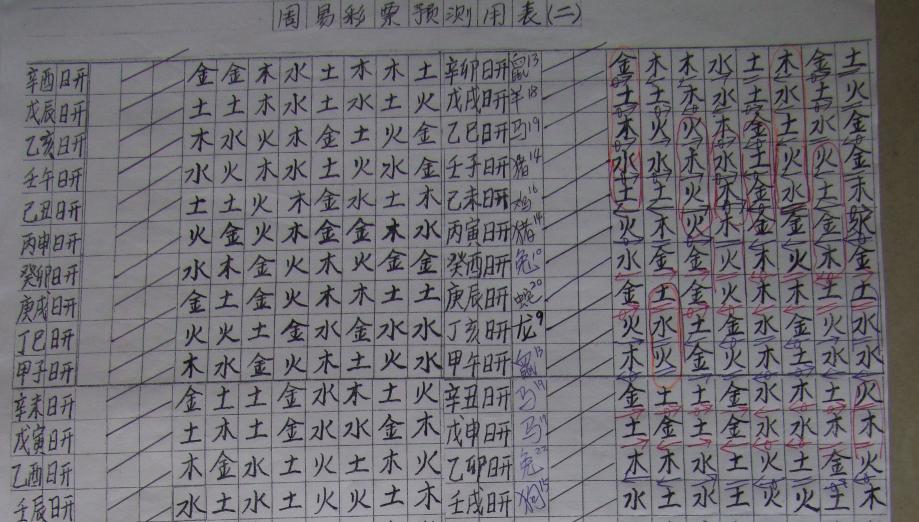 周易彩票预测用表(二)
辛酉日开 金金木水土木木土 辛卯日开 鼠13 金木木水土木金土
戊辰日开 土土木水土水土火 戊戌日开 羊18 土土木水土水土火
乙亥日开 木水火木金土火金 乙巳日开 马19 木火火木金土水金
壬午日开 水火木水土火水金 壬子日开 猪14 水水木水土火火金
己丑日开 土土火木金水土木 己未日开 鸡16 土土火木金水土木
丙申日开 火金火木金金木水 丙寅日开 猪14 火金火木金金金水
癸卯日开 水木金火木火金金 癸酉日开 兔10 水金金火木火木金
庚戌日开 金土金火木木土土 庚辰日开 蛇20 金土金火木木土土
丁巳日开 火火土金水金水水 丁亥日开 龙9 火水土金水金火水
甲子日开 木水金火木土火水 甲午日开 鼠13 木火金火木土水水
辛未日开 金土土金水木土火 辛丑日开 马19 金土土金水木土火
戊寅日开 土木土金水水金木 戊申日开 马 土金土金水水木木
乙酉日开 木金水土火土木火 乙卯日开 兔22 木木水土火土金火
壬辰日开 水土水土火火土木 壬戌日开 狗15 水土水土火火土木